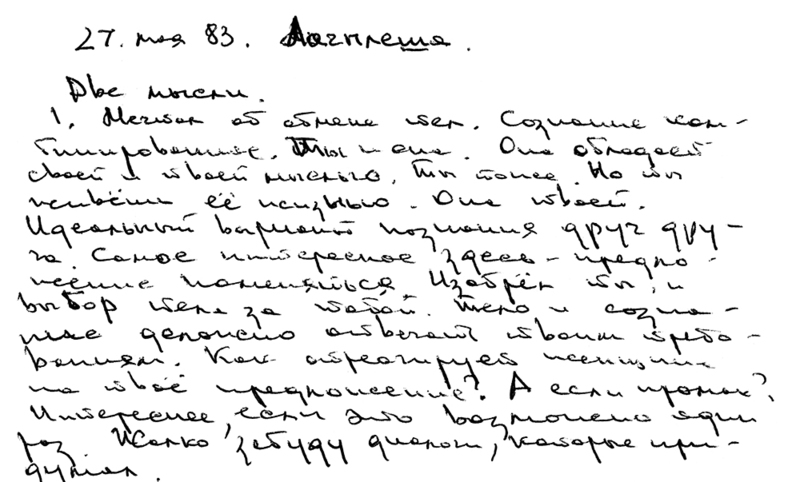 27. мая 83. Лагыпеша.
Две мысли.
1. Мечтал об обмене тел. Сознание ком-
бинированное. Ты и она. Она обладает
своей и твоей мыслью. Ты тоже. Но ты
живёшь её жизнью. Она твоей.
Идеальный вариант познания друг дру-
га. Самое интересное здесь – предло-
жение поменяться. Изобрёл ты, и
выбор тела за тобой. Тело и созна-
ние должно отвечать твоим требо-
ваниям. Как отреагирует женщина
на твоё предложение? А если промах?
Интереснее, если это возможно один
раз. Жалко забуду диалоги, которые при-
думал.